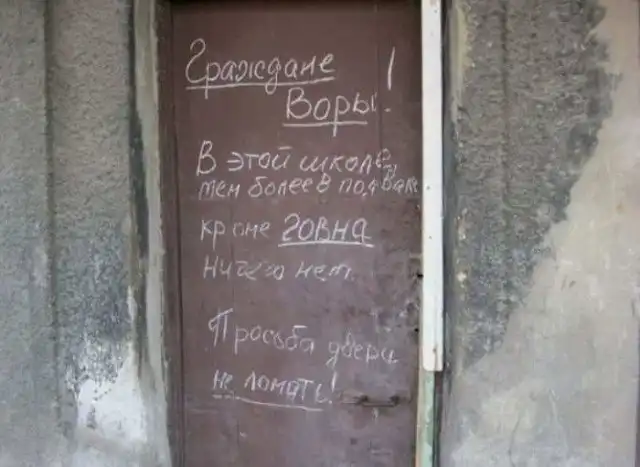 Граждане
Воры!
В этой школе,
тем более в подвале
кроме говна
ничего нет.
Просьба двери
не ломать!